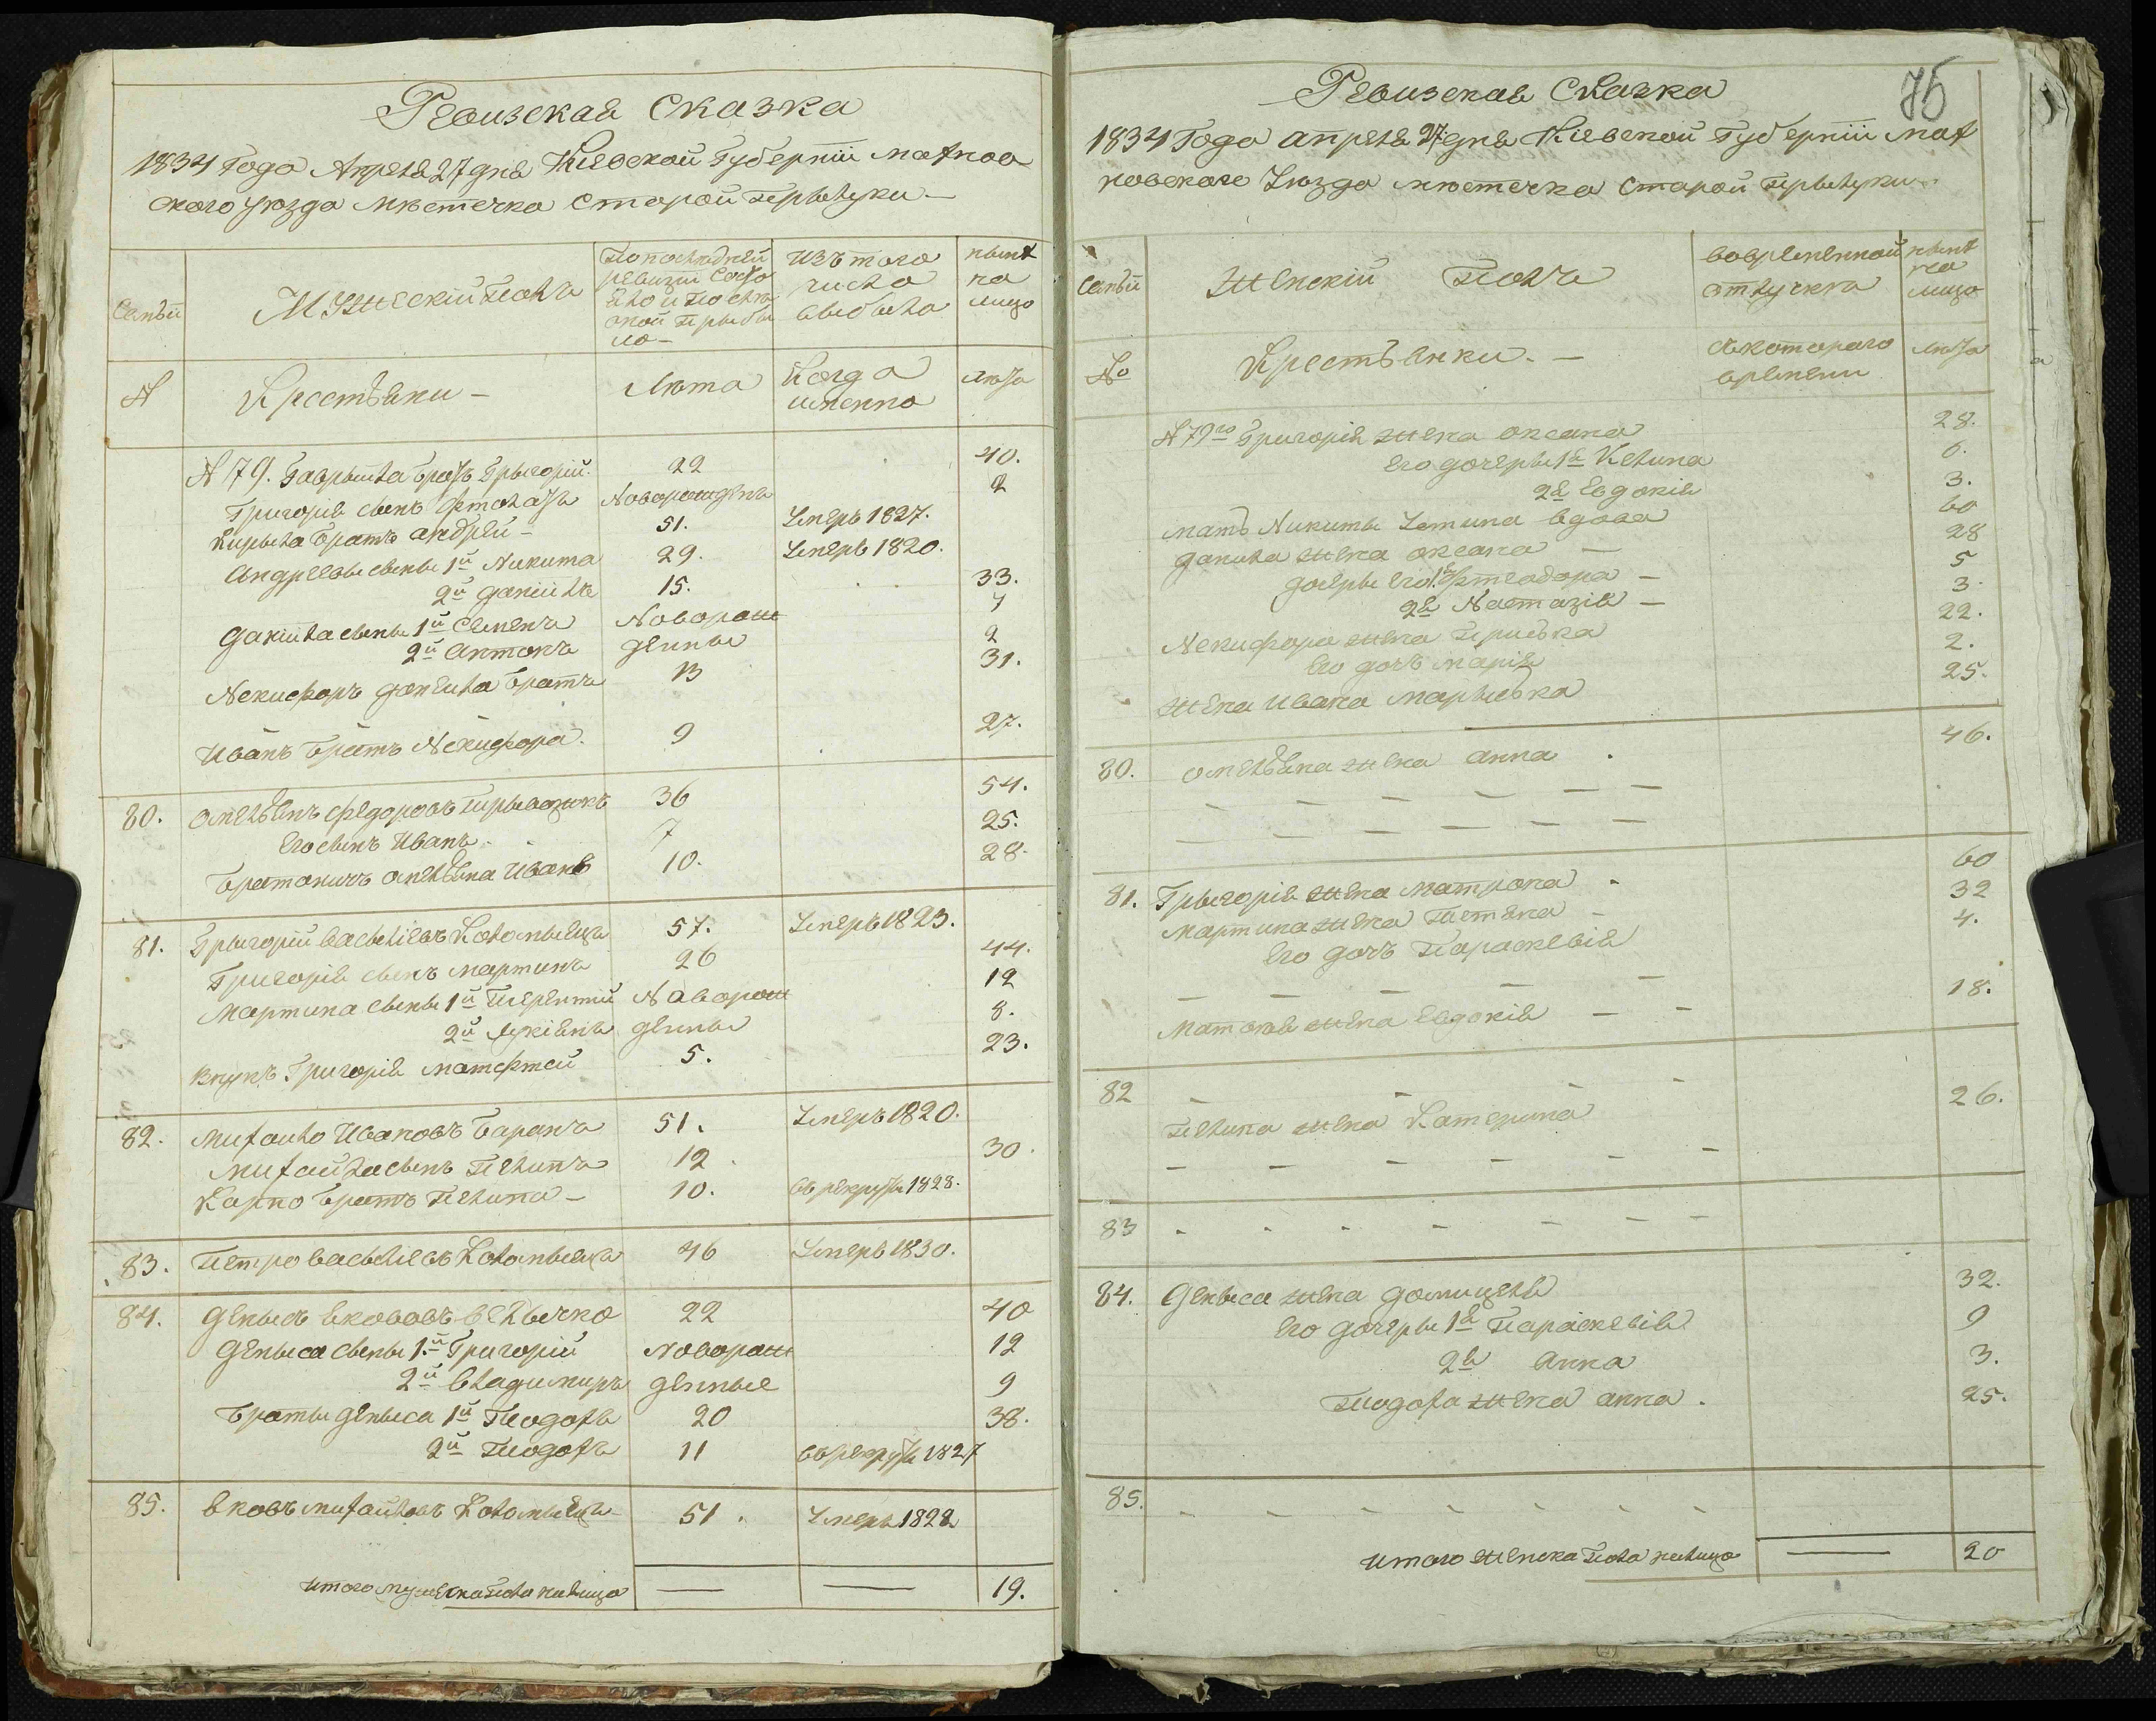 Ревизская Сказка
1834 Года Апреля 27 дня Киевской Губернiи Махнов
ского уезда местечка Старой Прылуки —
Семьи
Мужескiй Полъ
По последней
ревизiи состо
яло и после
оной прыбы
ло —
Изъ того
числа
выбыло
ныне
на
лицо
№
Крестьяни —
Лета
Когда
именно
лета
№ 79. Гаврыила братъ Грыгорiй. 22 40.
Григорiя сынъ Новорожденъ 2
Кирыла братъ Андрей — 51. Умеръ 1827.
Андреевы сыны 1й Никита 29. Умеръ 1820.
2й Данiилъ 15. 33.
Данiила сыны 1й Семенъ Новорож 4
2й Антонъ денны 2
Некифоръ Данила братъ 13 31.
Иванъ братъ Некифора. 9 27.
80. Омельянъ Федоровъ 36 54.
Его сынъ Иванъ. 7 25.
Братаничъ Омельяна Иванъ 10. 28.
81. Грыгорiй Васылiевъ Коломыецъ 57. Умеръ 1823.
Григорiя сынъ Мартинъ 26 44.
Мартина сыны 1й Терентiй Новорож 12
2й Лукiянъ денны 8.
Внукъ Григорiя Матфтей 5. 23.
82. Михайло Ивановъ Баранъ 51. Умеръ 1820.
Михайла сынъ Пилипъ 12. 30.
Карпо братъ Пилипа — 10. въ рекруты 1828.
83. Петро Васылiевъ Коломыецъ 46 Умеръ 1830.
84. Денысъ Яковов Велычко 22 40
Деныса сыны 1й Григорiй Новорож 12
2й Владимиръ денные 9
Браты Деныса 1й Тиодохъ 20 38.
2й Тиодохъ 11 въ рекруты 1827
85. Яковъ Михайловъ Коломыецъ 51. Умеръ 1828
Итого мужеска пола налицо — — 19.
75
Ревизская Сказка
1834 Года апреля 27 дня Киевской Губернiи Мах
новского Уезда местечка Старой Прылуки —
Семьи
Женскiй Полъ
Во временной
отлучке
ныне
на
лицо
№
Крестьянки. —
Скоторого
времени
лета
№ 79го Григорiя жена Оксана 28.
Его дочеры 1я Келина 6.
2я Евдокiя 3.
Мать Никиты Устина вдова 60
Данила жена Оксана — 28
Дочеры его 1я Фтеодора — 5
2я Настазiя — 3.
Некифора жена Приська 22.
Его дочь Марiя 2.
Жена Ивана Марыська 25.
80. Омельяна жена Анна. 46.
— — — — — —
— — — — — —
81. Грыгорiя жена Матрона 60
Мартина жена Тетяна — 32
Его дочъ Параскевiя 4.
— — — — —
жена Евдокiя — — 18.
82 — — — —
Пилипа жена Катерина 26.
— — — — — —
83 — — — — — — —
84. Деныса жена Домицеля 32.
Его дочеры 1я Параскевiя 9
2я Анна 3.
Тиодоха жена Анна. 25.
85. — — — — — —
Итого женска пола налицо — 20